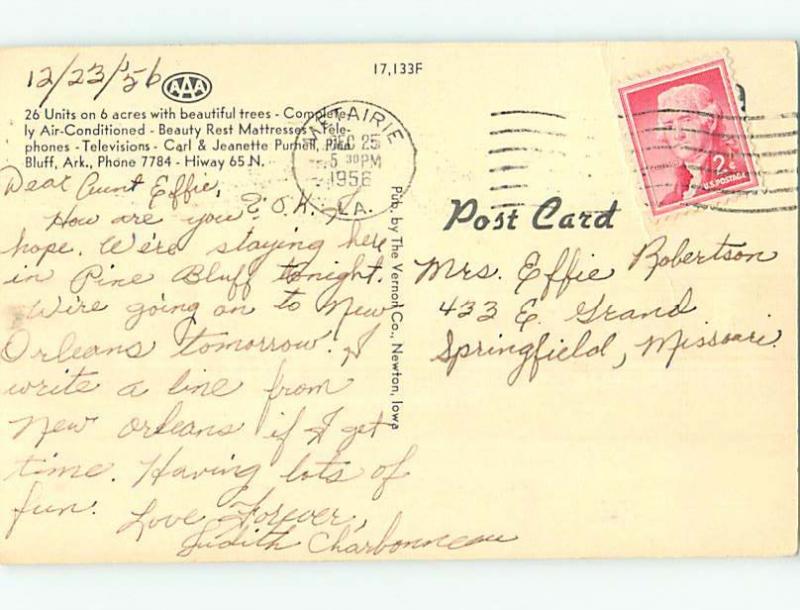 12/23/'56
AAA
17,133F
26 Units on 6 acres with beautiful trees - Complete-
ly Air-Conditioned - Beauty Rest Mattresses - Tele-
phones - Televisions - Carl & Jeanette Purnell, Pine
Bluff, Ark., Phone 7784 - Hiway 65 N.
METAIRIE
DEC 25
5 30 PM
1956
LA.
2¢
U.S. POSTAGE
Dear Aunt Effie,
How are you O.K. I
hope. We're staying here
in Pine Bluff tonight.
We're going on to New
Orleans tomorrow. I
write a line from
New Orleans if I get
time. Having lots of
fun.
Love Forever,
Judith Charbonneau
Pub. by The Vernon Co., Newton, Iowa
Post Card
Mrs. Effie Robertson
433 E. Grand
Springfield, Missouri.